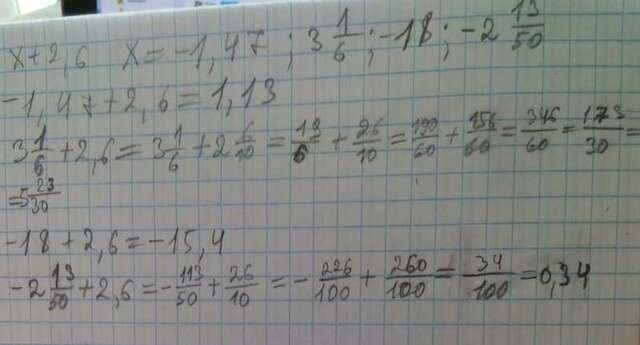 x+2,6 x=-1,47; 3 1/6; -18; -2 13/50
-1,47+2,6=1,13
3 1/6+2,6=3 1/6+2 6/10=19/6+26/10=190/60+156/60=346/60=173/30=
=5 23/30
-18+2,6=-15,4
-2 13/50+2,6=-113/50+26/10=-226/100+260/100=34/100=0,34